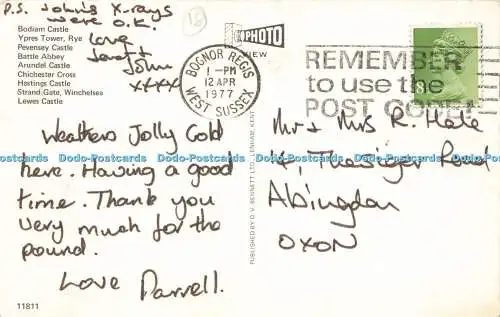 P.S. John's X-rays
were O.K.
Love
Janet +
John
xxxx
18
Bodiam Castle
Ypres Tower, Rye
Pevensey Castle
Battle Abbey
Arundel Castle
Chichester Cross
Hastings Castle
Strand Gate, Winchelsea
Lewes Castle
PHOTO
VIEW
BOGNOR REGIS
1 - PM
12 APR
1977
WEST SUSSEX
REMEMBER
to use the
POST CODE
8
Weathers Jolly Cold
here. Having a good
time. Thank you
very much for the
pound.
Love Darrell.
Mr + Mrs R. Hale
14, Thesiger Road
Abingdon
OXON
PUBLISHED BY D. V. BENNETT LTD.
11811
Dodo-Postcards Dodo-Postcards Dodo-Postcards Dodo-Postcards Dodo-Postcards Dodo-Postcards